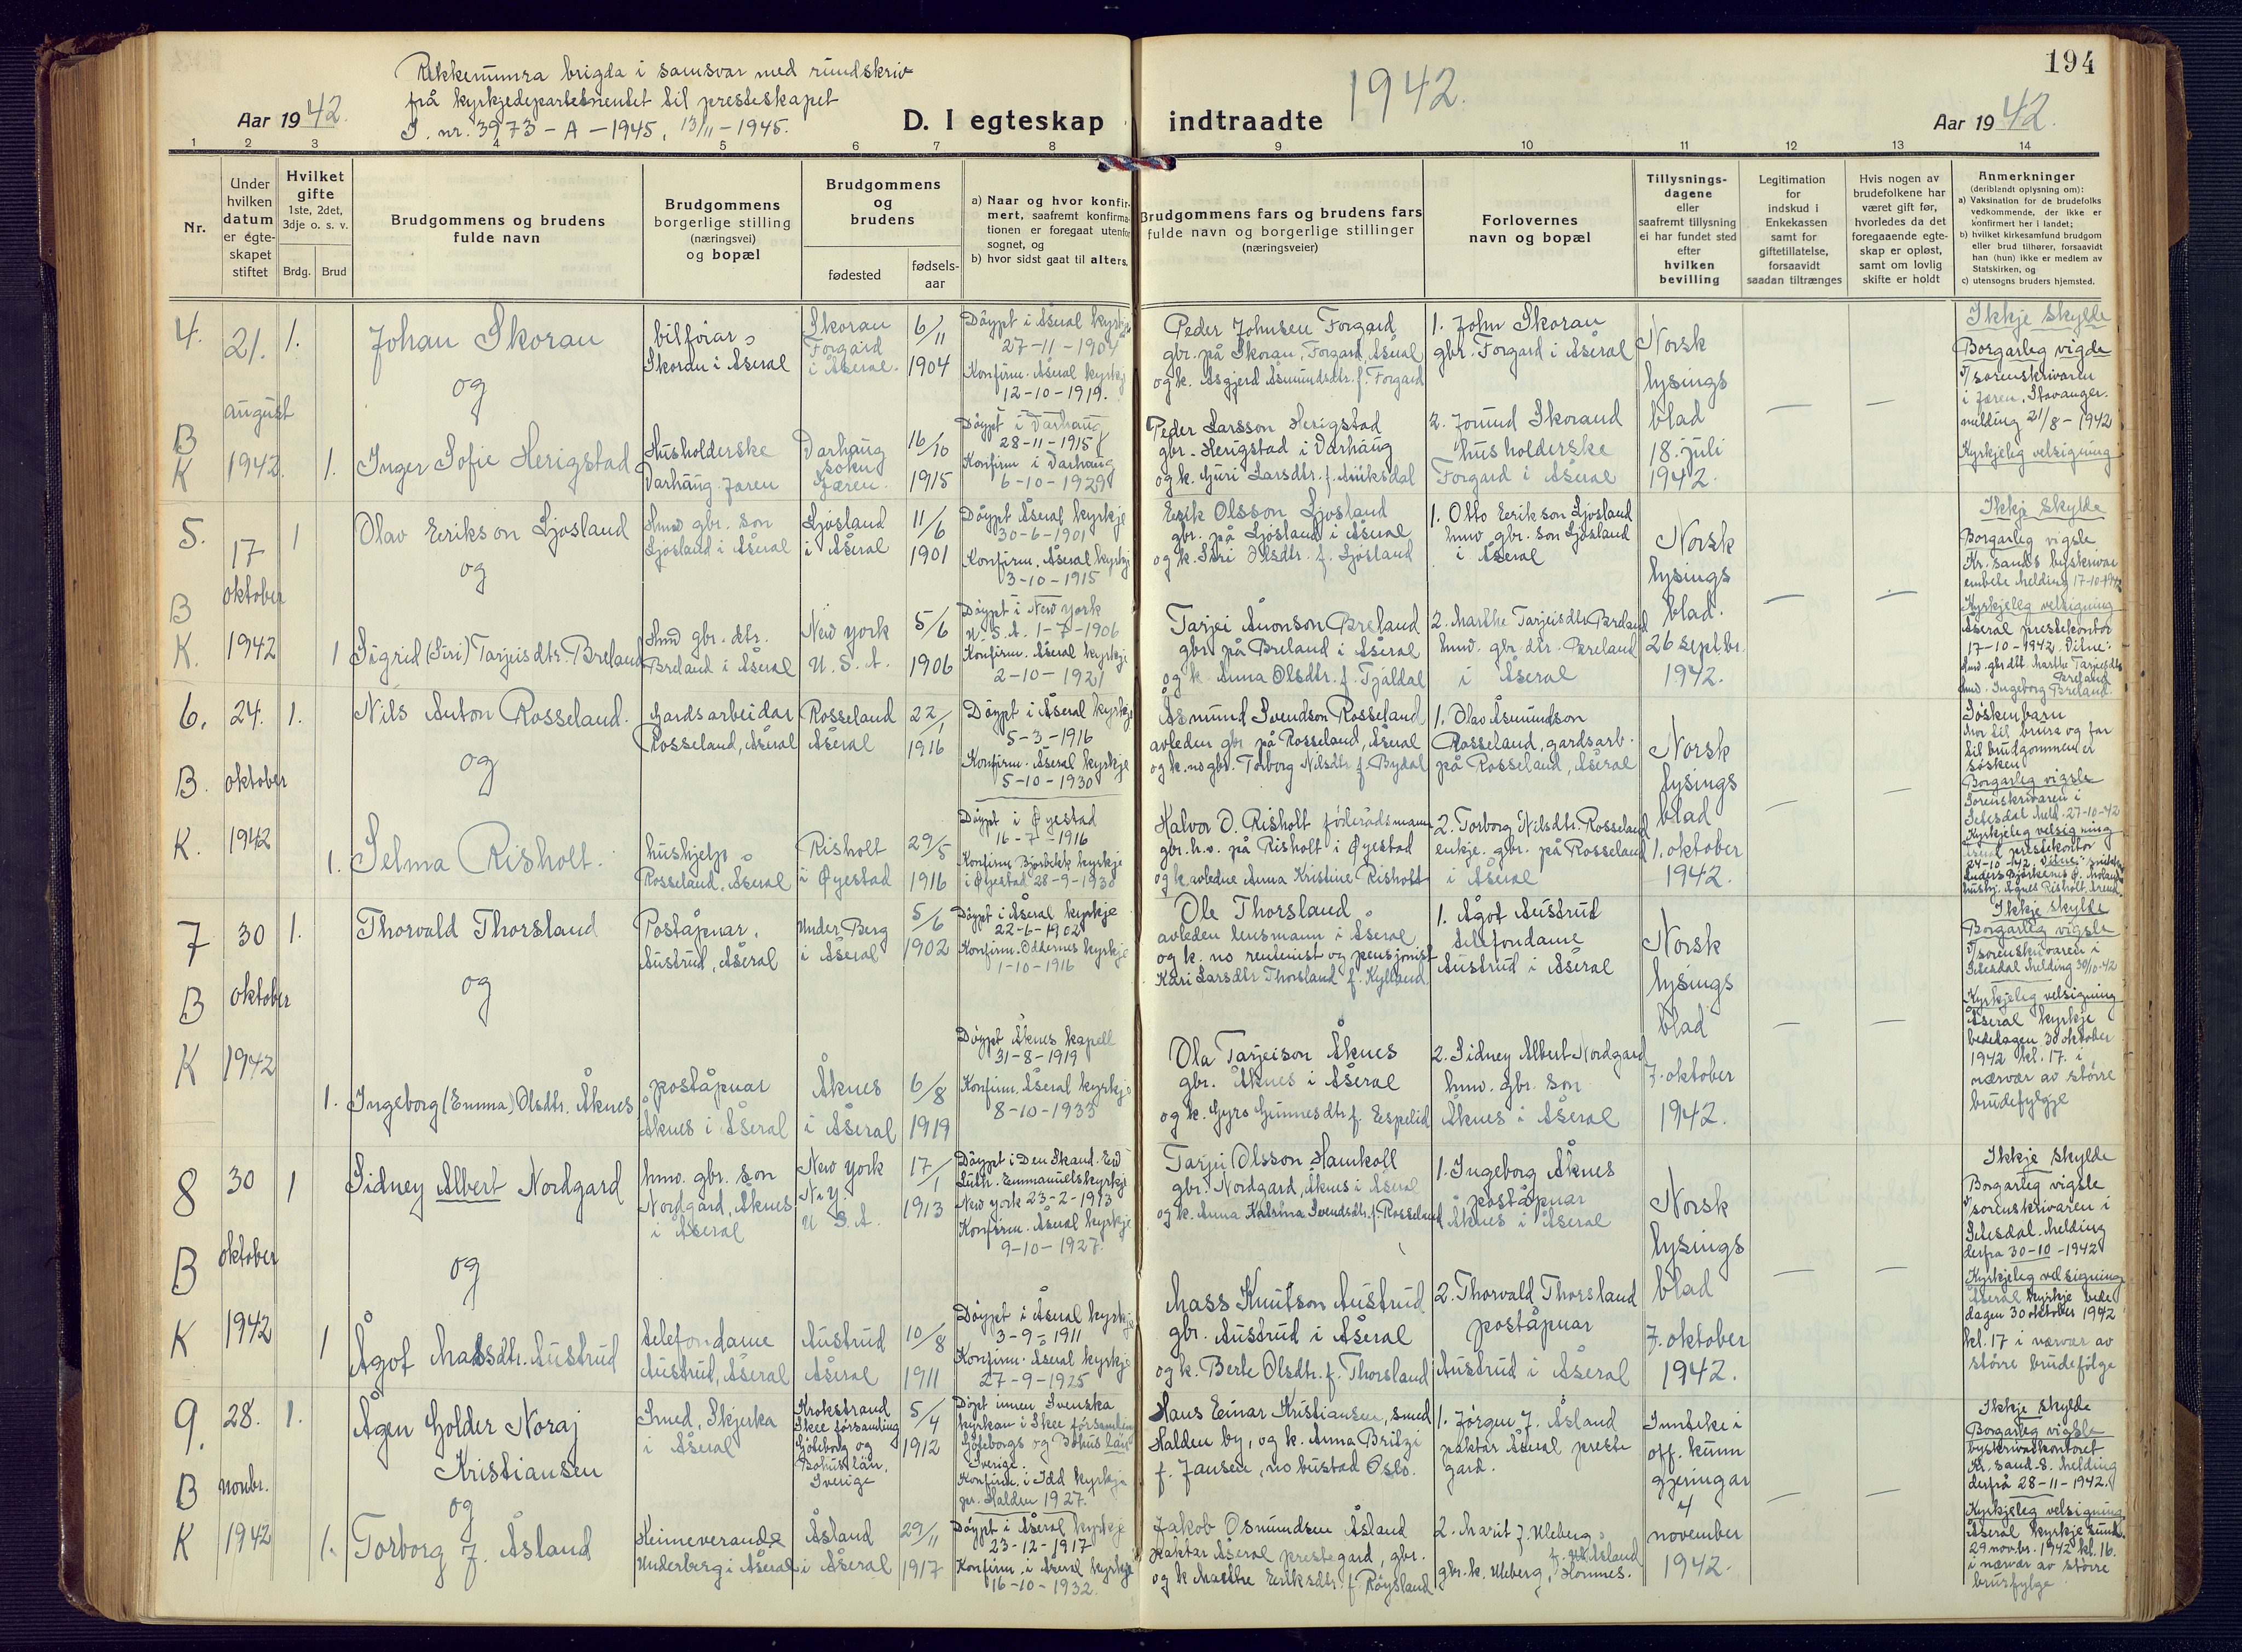 194
Rekkenumra brigda i samsvar med rundskriv
frå kyrkjedepartementet til presteskapet
J. nr. 3973 - A - 1945, 13/11 - 1945.
Aar 1942.
D. I egteskap indtraadte
1942.
Aar 1942.
1 2 3 4 5 6 7 8 9 10 11 12 13 14
Nr.
Under
hvilken
datum
er egte-
skapet
stiftet
Hvilket
gifte
1ste, 2det,
3dje o. s. v.
Brdg. Brud
Brudgommens og brudens
fulde navn
Brudgommens
borgerlige stilling
(næringsvei)
og bopæl
Brudgommens
og
brudens
fødested
fødsels-
aar
a) Naar og hvor konfir-
mert, saafremt konfirma-
tionen er foregaat utenfor
sognet, og
b) hvor sidst gaat til alters.
Brudgommens fars og brudens fars
fulde navn og borgerlige stillinger
(næringsveier)
Forlovernes
navn og bopæl
Tillysnings-
dagene
eller
saafremt tillysning
ei har fundet sted
efter
hvilken
bevilling
Legitimation
for
indskud i
Enkekassen
samt for
giftetillatelse,
forsaavidt
saadan tiltrænges
Hvis nogen av
brudefolkene har
været gift før,
hvorledes da det
foregaaende egte-
skap er opløst,
samt om lovlig
skifte er holdt
Anmerkninger
(deriblandt oplysning om):
a) Vaksination for de brudefolks
vedkommende, der ikke er
konfirmert her i landet;
b) hvilket kirkesamfund brudgom
eller brud tilhører, forsaavidt
han (hun) ikke er medlem av
Statskirken, og
c) utensogns bruders hjemsted.
4.
B
K
21.
august
1942.
1.
Johan Skoran
og
bilførar,
Skoran i Åseral
Skoran
Forgard
i Åseral.
6/11
1904
Døypt i Åseral kyrkje
27-11-1904
Konfirm. Åseral kyrkj
12-10-1919.
Peder Johnsen Forgard
gbr. på Skoran, Forgard, Åseral
og k. Asgjerd Åsmundsdtr. f. Forgard
1. John Skoran
gbr. Forgard i Åseral
Norsk
lysings
blad
18. juli
1942.
Ikkje skylde
Borgarleg vigde
v/ sorenskrivaren
i Jæren, Stavanger.
melding 21/8-1942
Kyrkjeleg velsigning
1.
Inger Sofie Herigstad
Husholderske
Varhaug. Jæren
Varhaug
sokn
Jæren.
16/10
1915
Døypt i Varhaug
28-11-1915
Konfirm i Varhaug
6-10-1929
Peder Larsson Herigstad
gbr. Herigstad i Varhaug
og k. Guri Larsdtr. f. Auksdal
2. Jorund Skorand
husholderske
Forgard i Åseral
5.
B
K.
17
oktober
1942
1
Olav Erikson Ljosland
og
Hmv gbr. son
Ljosland i Åseral
Ljosland
i Åseral
11/6
1901
Døypt Åseral kyrkje
30-6-1901
Konfirm. Åseral kyrkj
3-10-1915
Erik Olsson Ljosland
gbr. på Ljosland i Åseral
og k. Siri Olsdtr. f. Ljosland
1. Otto Erikson Ljosland
hmv gbr. son Ljosland
i Åseral
Norsk
lysings
blad.
26 septbr.
1942.
Ikkje skylde
Borgarleg vigsle
Kr. sands byskrivar
embete melding 17-10-1942
Kyrkjeleg velsigning
Åseral prestekontor
17-10-1942. Vitne:
hmv. gbr dtt. Marthe Tarjeisdtr
Breland
hmv. Ingeborg Breland.
1
Sigrid (Siri) Tarjeisdtr. Breland
Hmv gbr. dtr.
Breland i Åseral
New York
U. S. A.
5/6
1906
Døypt i New York
U. S. A. 1-7-1906
Konfirm. Åseral kyrkje
2-10-1921
Tarjei Ånonson Breland
gbr på Breland i Åseral
og k. Anna Olsdtr. f. Tjaldal
2. Marthe Tarjeisdtr Breland
hmv. gbr. dtr. Breland
i Åseral
6.
B.
K.
24.
oktober
1942
1.
Nils Anton Rosseland.
og
Gardsarbeidar
Rosseland, Åseral
Rosseland
Åseral
22/1
1916
Døypt i Åseral kyrkje
5-3-1916
Konfirm. Åseral kyrkje
5-10-1930
Åsmund Svendson Rosseland
avleden gbr på Rosseland, Åseral
og k. no gbr. Torborg Nilsdtr f. Bydal
1. Olav Åsmundson
Rosseland, gardsarb.
på Rosseland, Åseral
Norsk
lysings
blad
1. oktober
1942.
Søskenbarn
Mor til brura og far
til brudgommen er
søsken
Borgarleg vigsle
Sorenskrivaren i
Setesdal meld. 27-10-42
Kyrkjeleg velsigning
Åseral prestekontor
24-10-42. Vitne:
1.
Selma Risholt.
hushjelp
Rosseland, Åseral
Risholt
i Øyestad
29/5
1916
Døypt i Øyestad
16-7-1916
Konfirm Bjorbekk kyrkje
i Øyestad 28-9-1930
Halvor O. Risholt føderådsmann
gbr. h.v. på Risholt i Øyestad
og k. avledne Anna Kristine Risholt
2. Torborg Nilsdtr. Rosseland
enkje. gbr. på Rosseland
i Åseral
7
B
K
30
oktober
1942
1.
Thorvald Thorsland
og
Poståpnar,
Austrud, Åseral
Under Berg
i Åseral
5/6
1902
Døypt i Åseral kyrkje
22-6-1902
Konfirm. Oddernes kyrkje
1-10-1916
Ole Thorsland
avleden lensmann i Åseral
og k. no rentenist og pensjonist
Kari Larsdtr Thorsland f. Kylland
1. Ågot Austrud
telefondame
Austrud i Åseral
Norsk
lysings
blad
7. oktober
1942.
Ikkje skylde
Borgarleg vigsle
v/ sorenskrivaren i
Setesdal melding 30/10-42
Kyrkjeleg velsigning
Åseral kyrkje
bededagen, 30 oktober
1942 kl. 17. i
nærvær av større
brudefylgje
1.
Ingeborg (Emma) Olsdtr. Åknes
poståpnar
Åknes i Åseral
Åknes
i Åseral
6/8
1919
Døypt Åknes kapell
31-8-1919
Konfirm. Åseral kyrkje
8-10-1933
Ola Tarjeison Åknes
gbr. Åknes i Åseral
og k. Gyro Gunnesdtr f. Espelid
2. Sidney Albert Nordgard
hmv. gbr. son
Åknes i Åseral
8
B
K
30
oktober
1942
1
Sidney Albert Nordgard
og
hmv. gbr. son
Nordgard, Åknes
i Åseral
New York
N. Y.
U. S. A.
17/1
1913
Døypt i Den Skand. Ev
Luth. Emmanuelskyrkje
New York 23-2-1913
Konfirm. Åseral kyrkje
9-10-1927.
Tarjei Olsson Hamkoll
gbr. Nordgard, Åknes i Åseral
og k. Anna Katrina Svendsdtr. f. Rosseland
1. Ingeborg Åknes
poståpnar
Åknes i Åseral
Norsk
lysings
blad
7. oktober
1942.
Ikkje skylde
Borgarleg vigsle
v/ sorenskrivaren i
Setesdal. Melding
derfra 30-10-1942
Kyrkjeleg velsigning
Åseral kyrkje bede
dagen 30 oktober 1942
kl. 17 i nærvær av
større brudefølge
1
Ågot Massdtr. Austrud
telefondame
Austrud, Åseral
Austrud
Åseral
10/8
1911
Døypt i Åseral kyrkje
3-9-1911
Konfirm. Åseral kyrkje
27-9-1925
Mass Knutson Austrud
gbr. Austrud i Åseral
og k. Berte Olsdtr. f. Thorsland
2. Thorvald Thorsland
poståpnar
Austrud i Åseral
9.
B
K
28.
novbr.
1942
1.
Ågen Holder Noraj
Kristiansen
og
Smed, Skjerka
i Åseral
Krokstrand
Skee församling
Göteborg og
Bohus län,
Sverige
5/4
1912
Döpt innen Svenska
kyrkan i Skee församling
Göteborgs og Bohus län
Sverige.
Konfirm. i Idd kyrkje
pr. Halden 1927.
Hans Einar Kristiansen, smed
Halden by, og k. Anna Britzi
f. Jansen, no bustad Oslo.
1. Jørgen J. Åsland
paktar Åseral preste
gard.
Innteke i
off. kunn
gjeringar
4
november
1942.
Ikkje skylde
Borgarleg vigsle
byskrivarkontoret
Kr. sand. S. Melding
derfrå 28-11-1942.
Kyrkjeleg velsigning
Åseral kyrkje sund.
29 novbr. 1942 kl. 16.
i nærvær av større
brurfylge
1.
Torborg J. Åsland
Heimeverande
Underberg i Åseral
Åsland
i Åseral
29/11
1917
Døypt i Åseral kyrkje
23-12-1917
Konfirm. i Åseral kyrkje
16-10-1932.
Jakob Osmundsen Åsland
paktar Åseral prestegard, gbr.
og k. Marthe Eriksdtr. f. Røysland
2. Marit J. Uleberg
f. Åsland
gbr. k. Uleberg, Hornnes.